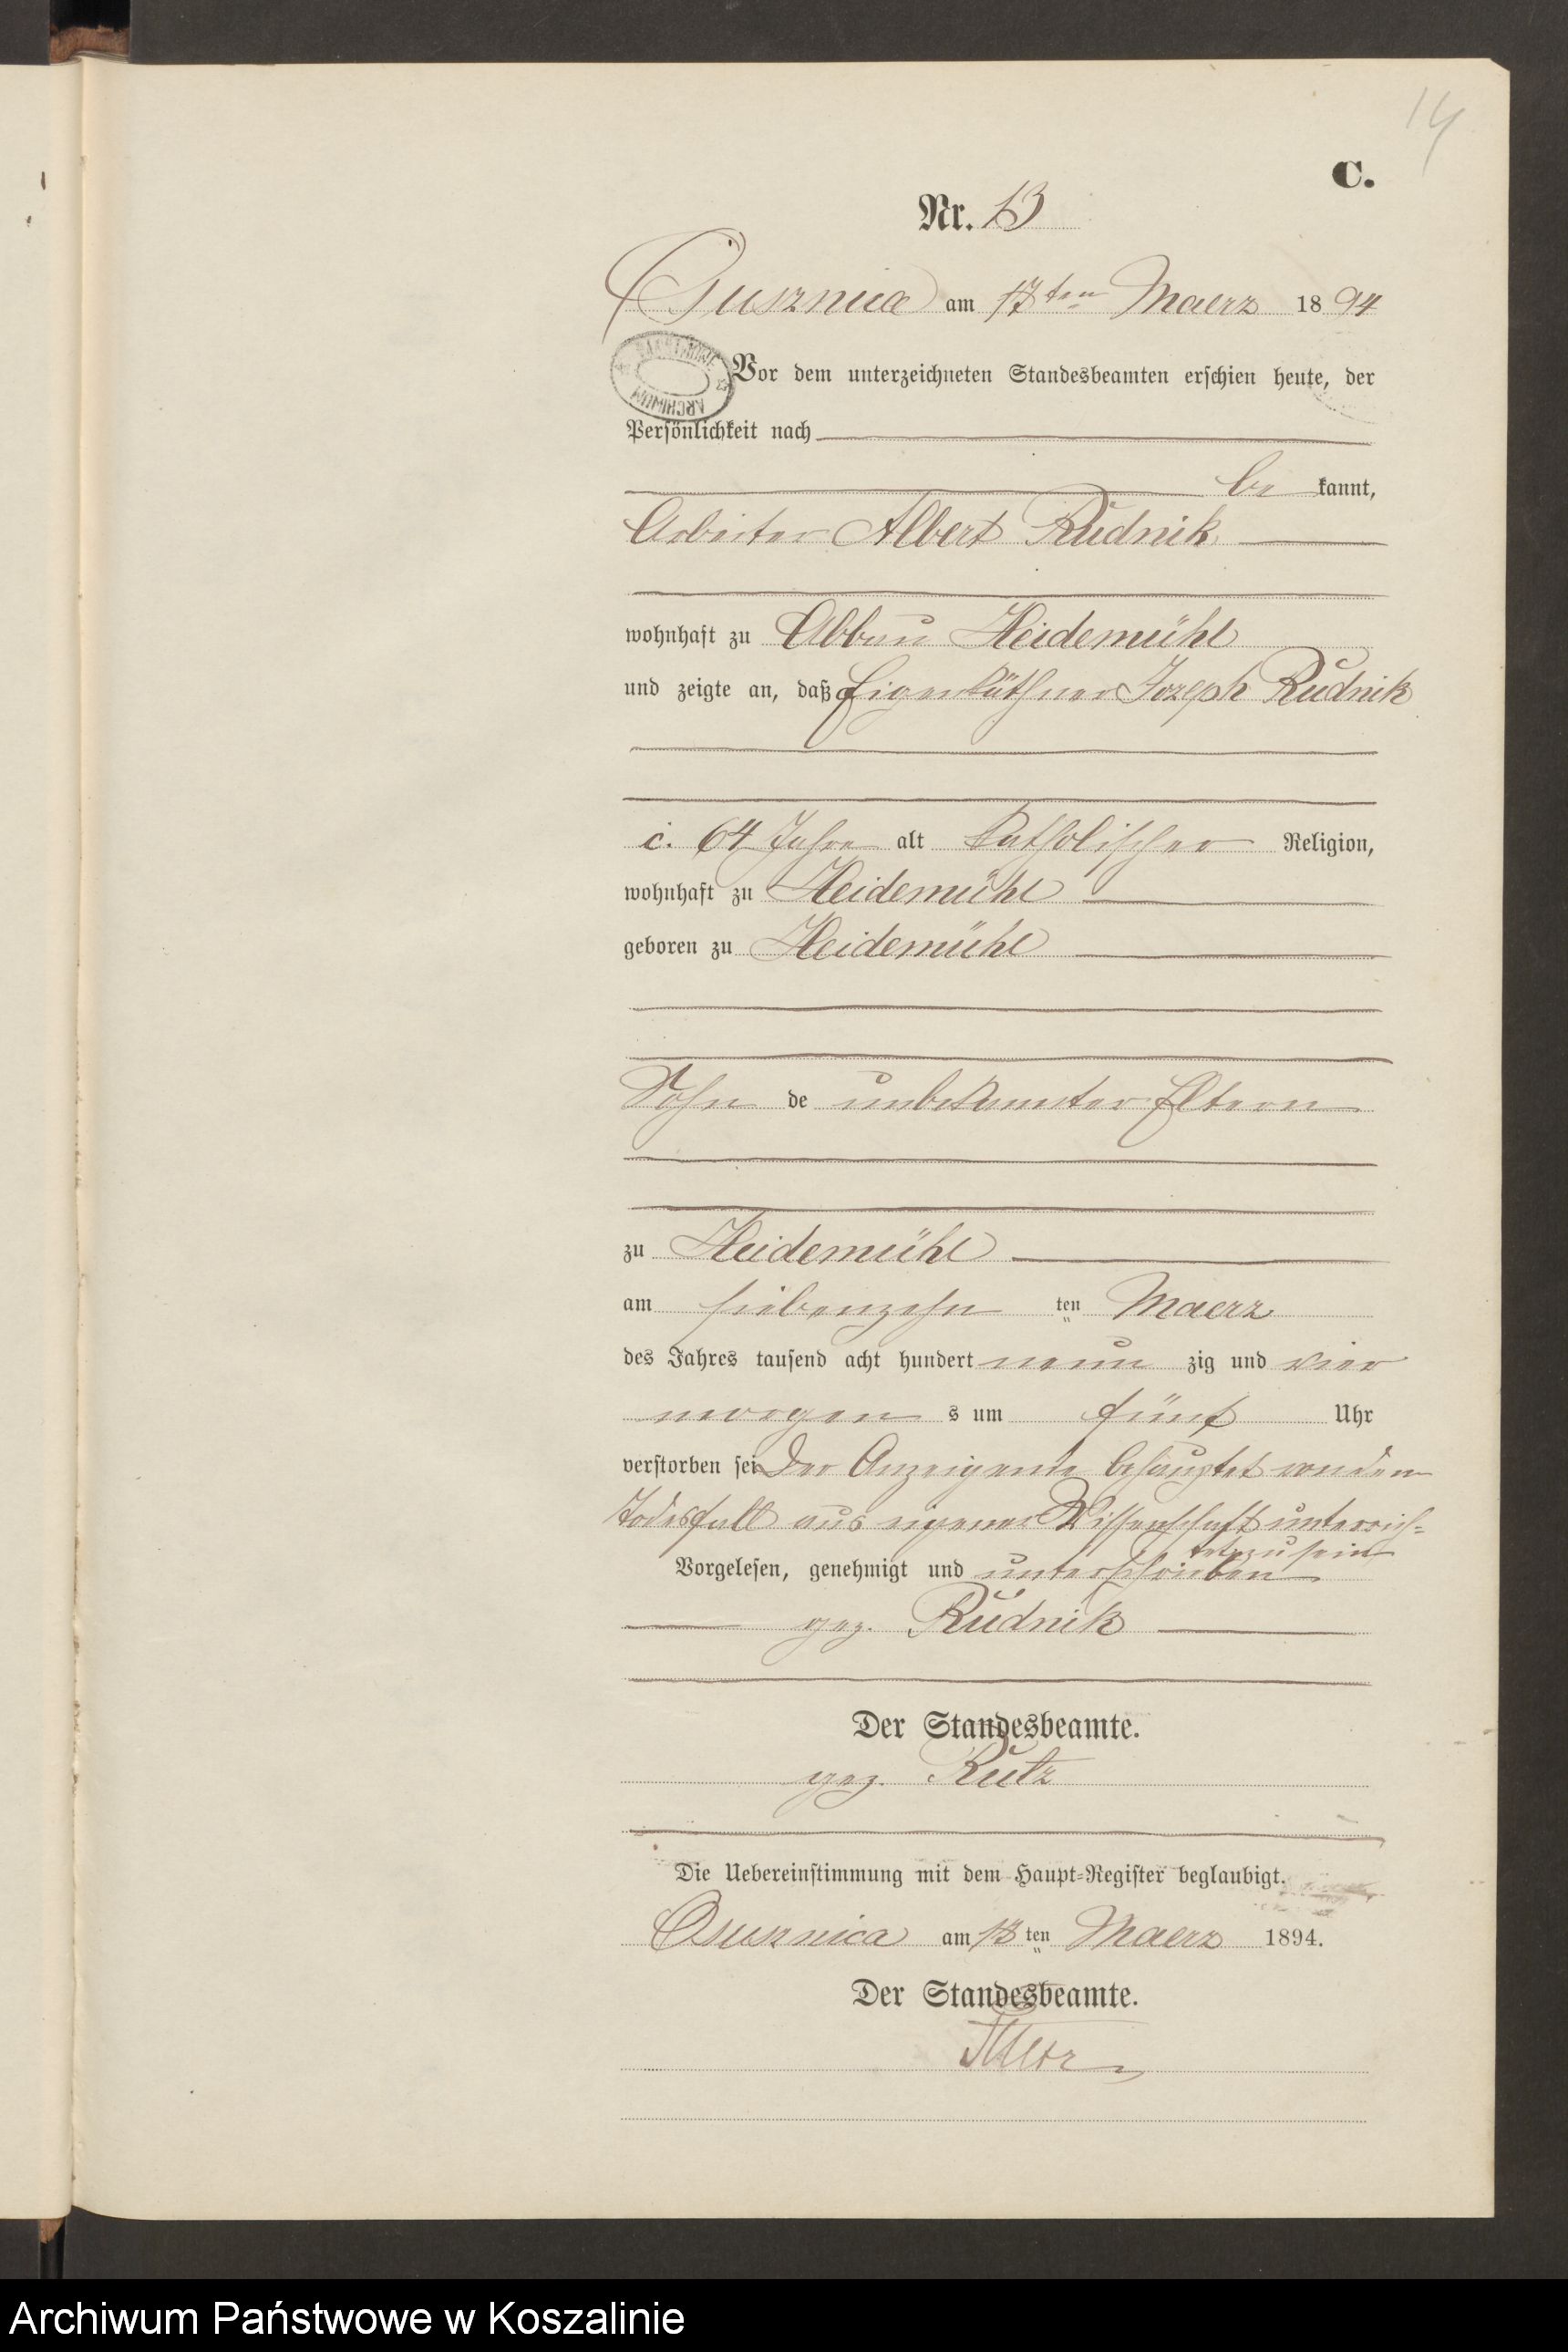 14
C.
Nr. 13
Osusznica am 17ten Maerz 1894
ARCHIWUM
Vor dem unterzeichneten Standesbeamten erschien heute, der
Persönlichkeit nach
be kannt,
Arbeiter Albert Rudnik
wohnhaft zu Abbau Heidemühl
und zeigte an, daß Eigenkäthner Jozeph Rudnik
c. 64 Jahre alt katholischer Religion,
wohnhaft zu Heidemühl
geboren zu Heidemühl
Sohn de unbekannter Eltern
zu Heidemühl
am siebenzehn ten Maerz
des Jahres tausend acht hundert neun zig und vier
morgen s um fünf Uhr
verstorben sei Der Anzeigende behauptet von dem
Todesfall aus eigener Wissenschaft unterrich=
tet zu sein
Vorgelesen, genehmigt und unterschrieben
gez. Rudnik
Der Standesbeamte.
gez. Rutz
Die Uebereinstimmung mit dem Haupt=Register beglaubigt.
Osusznica am 18 ten Maerz 1894.
Der Standesbeamte.
Archiwum Państwowe w Koszalinie